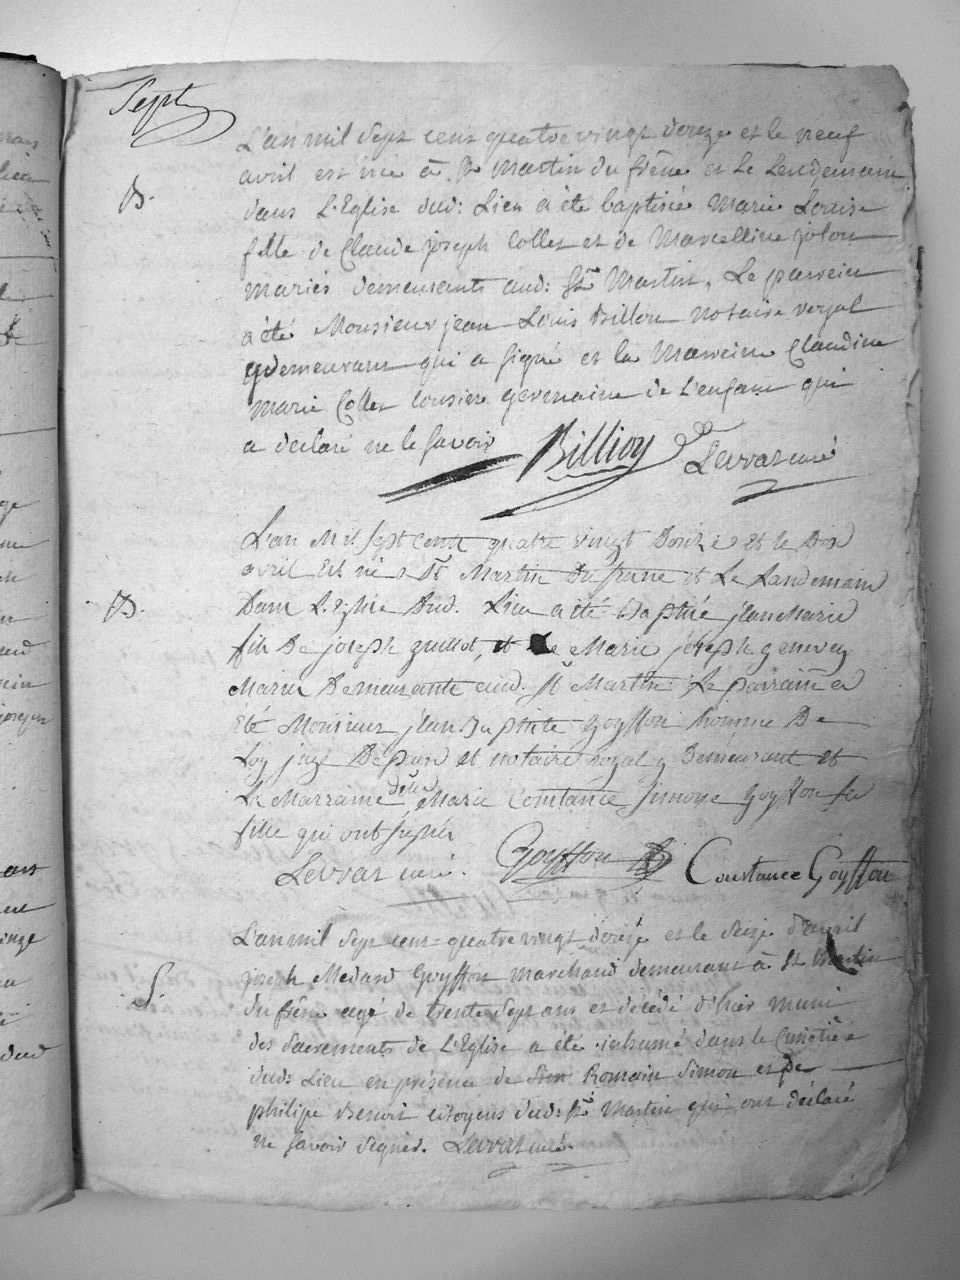 Sept
L'an mil sept cent quatre vingt douze et le neuf
B.
avril est née à St Martin du frêne et le Lendemain
dans L'Eglise dud: Lieu a été baptisée Marie Louise
fille de Claude joseph Collet et de Marcelline jolon
mariés demeurants aud: St Martin, Le parrein
a été Monsieur jean Louis Billion notaire royal
y demeurant qui a signé et la Marreine Claudine
Marie Collet cousine germaine de L'enfant qui
a declaré ne le savoir Billion Levrat curé
L'an Mil sept cent quatre vingt Douze et le Dix
avril Est né a St Martin Du frene et Le Landemain
B.
Dans L'Eglise Dud. Lieu a été Baptisé jean Marie
fils De joseph guillot, et de Marie joseph genevey
Mariés Demeurants aud. St Martin Le parrain a
Eté Monsieur jean Baptiste Goyffon homme De
Loy juge De paix et notaire royal y Demeurant et
La Marraine delle Marie Constance Goyffon sa
fille qui ont signés
Levrat curé. Goyffon Constance Goyffon
L'an mil sept cent quatre vingt douze et le seize d'avril
joseph Medard Goyffon marchand demeurant à St Martin
S.
du frêne agé de trente sept ans et décédé d'hier muni
des Sacrements de L'Eglise a été inhumé dans le Cimetière
dud: Lieu en présence de Romain Simon et de
philipe Benoit citoyens dud: St Martin qui ont déclaré
ne savoir signer. Levrat curé.